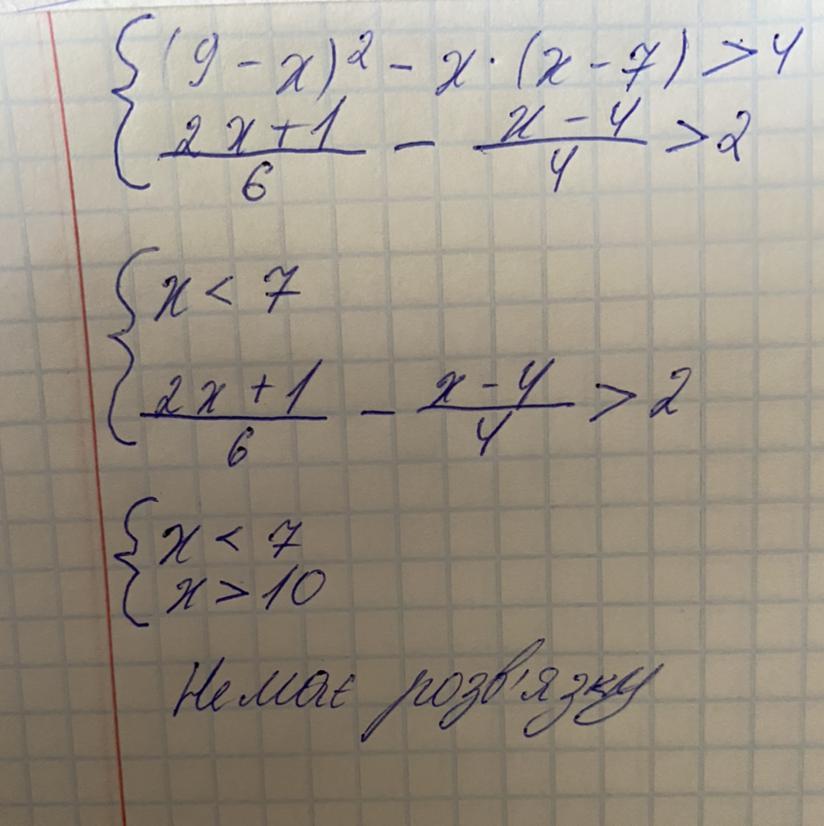 {(9 - x)² - x · (x - 7) > 4
{(2x + 1)/6 - (x - 4)/4 > 2
{x < 7
{(2x + 1)/6 - (x - 4)/4 > 2
{x < 7
{x > 10
Немає розв'язку